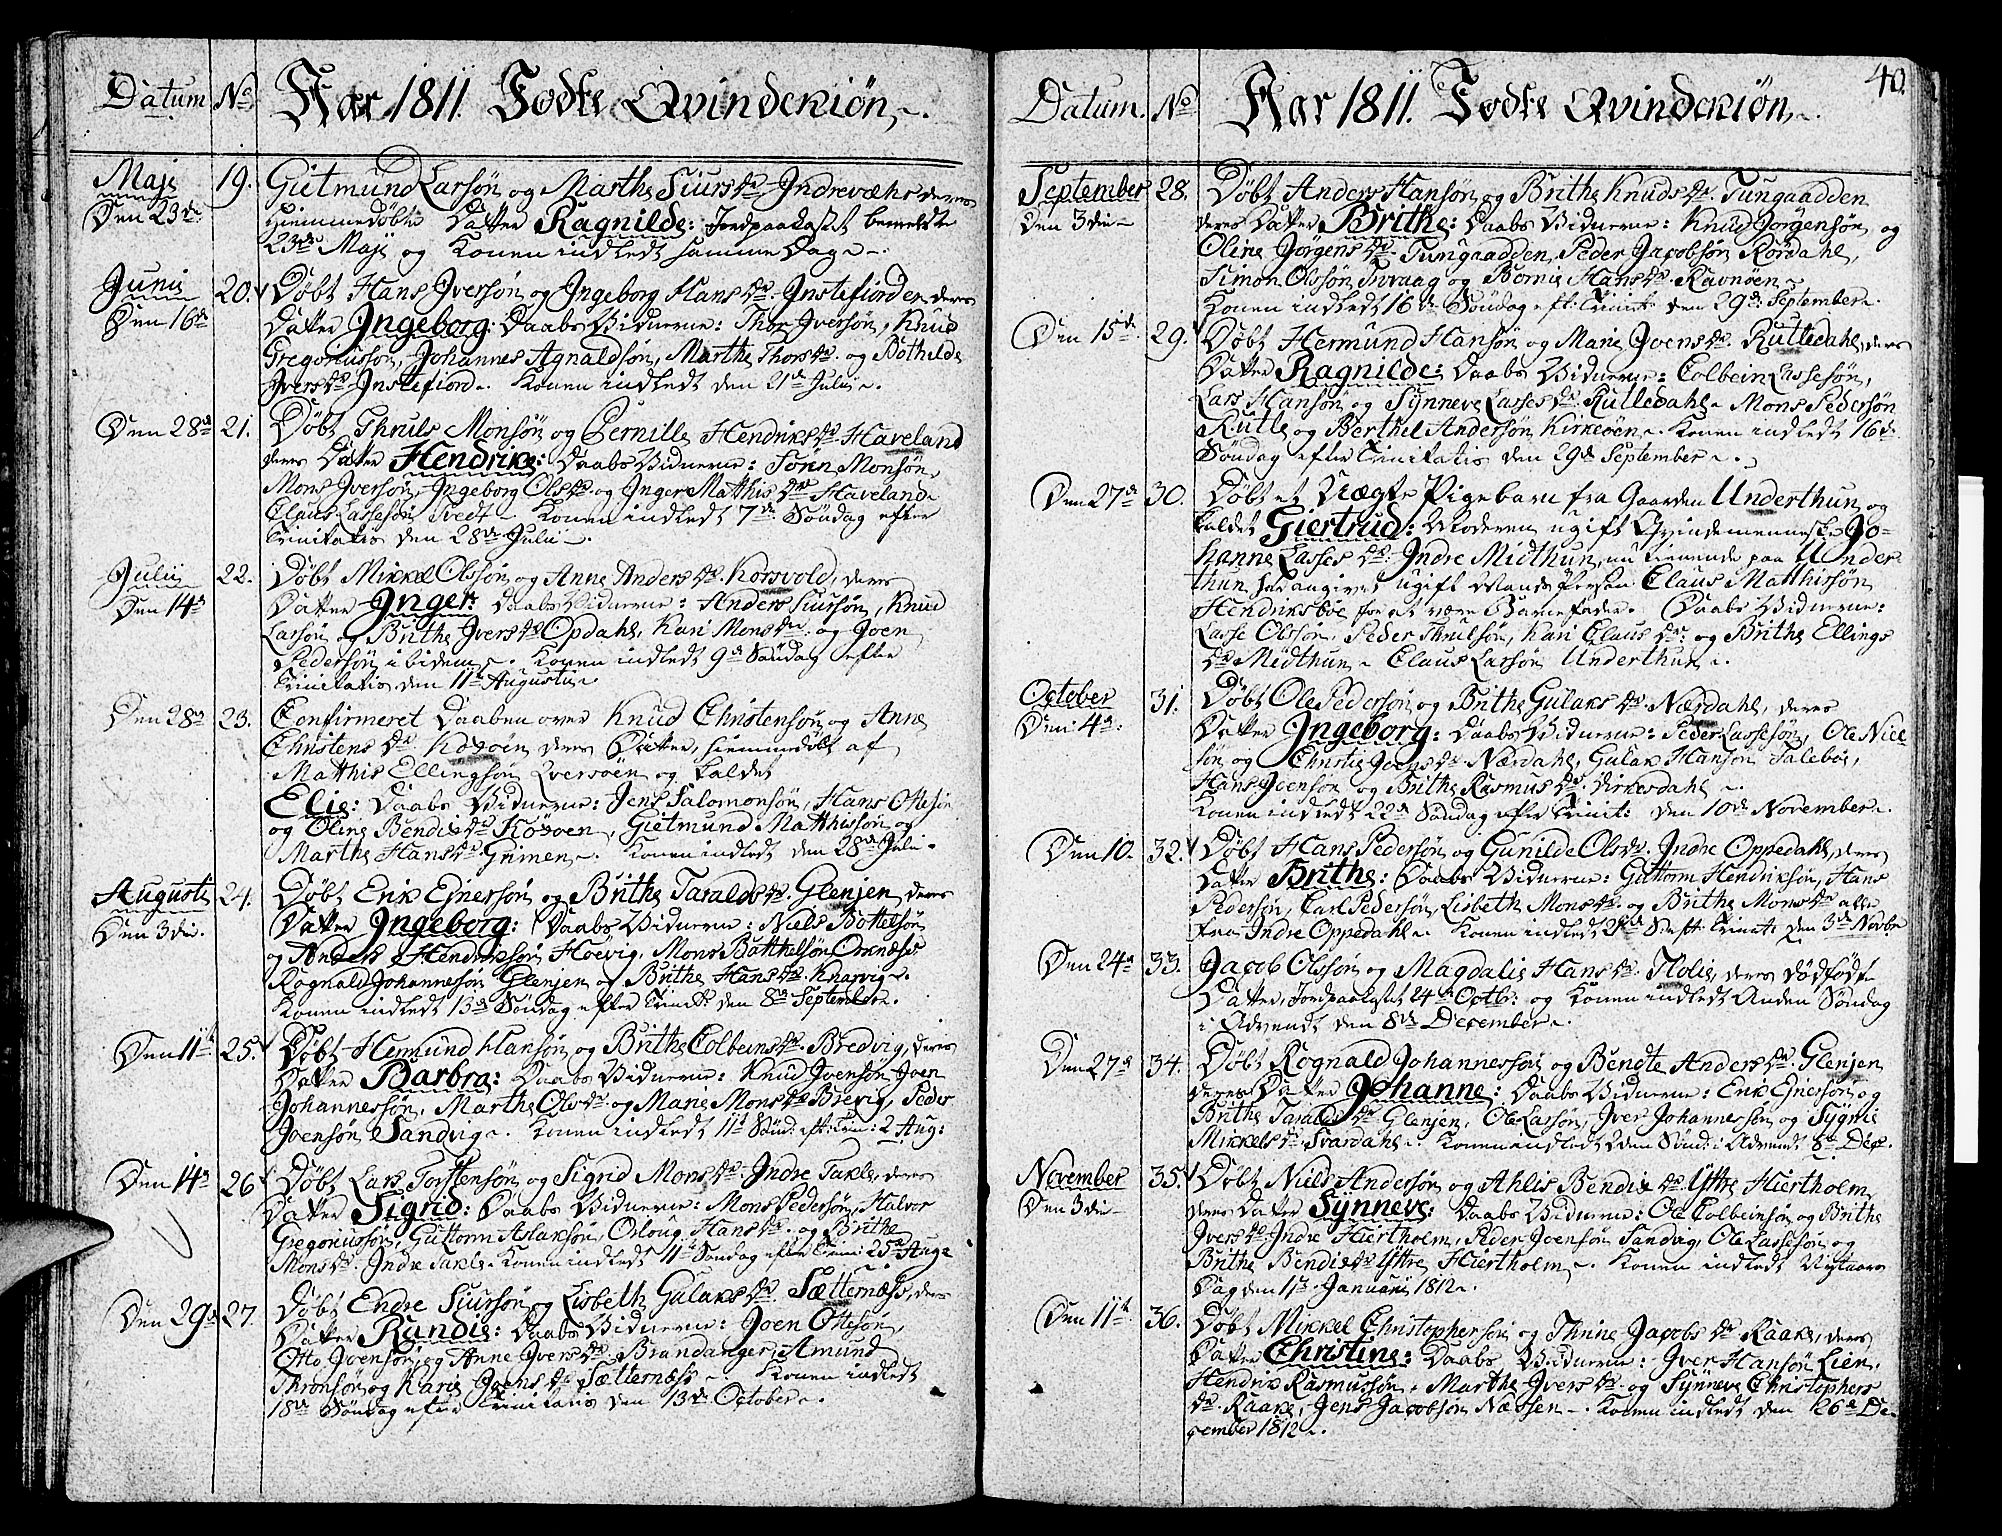 Datum No Aar 1811. Fødte Qvindekiøn
Maji 19. Gietmund Larsøn og Marthe Siursdr Indrevæhr deres
Den 23de Hiemmedøbte Datter Ragnilde: Jordpaakastet bemeldte
23de Maji og Konen indledt samme Dag.
Junii 20. Døbt Hans Iversøn og Ingeborg Hansdr Instefiorden deres
Den 16de Datter Ingeborg: Daabs Vidnerne: Thor Iversøn, Knud
Gregoriussøn, Johannes Agnaldsøn, Marthe Thorsdr og Bothilde
Iversdr Instefiord. Konen indledt den 21de Julii.
Den 28de 21. Døbt Thruls Monsøn og Pernille Hendriksdr Haveland
deres Datter Hendrike: Daabs Vidnerne: Sørin Monsøn,
Mons Iversøn, Ingeborg Olsdr og Inger Matthisdr Haveland
Claus Lassesøn Tvedt. Konen indledt 7de Søndag efter
Trinitatis den 28de Julii.
Julii 22. Døbt Mikkel Olssøn og Anne Andersdr Korsvold, deres
Den 14de Datter Inger: Daabs Vidnerne: Anders Siursøn, Knud
Larsøn og Brithe Iversdr Opdahl, Kari Monsdr og Joen
Pedersøn ibidem. Konen indledt 9de Søndag efter
Trinitatis den 11te Augusti.
Den 28de 23. Confirmeret Daaben over Knud Christensøn og Anne
Christensdr deres Datter, hiemmedøbt af
Matthis Ellingsøn Qversøen og kaldet
Elie: Daabs Vidnerne: Jens Salomonsøn, Hans Ottesøn
og Oline Bendixdr Gietmund Matthissøn og
Marthe Hansdr Grimen. Konen indledt den 28de Juli.
Augusti 24. Døbt Erik Ejnersøn og Brithe Taraldsdr Glenjen, deres
Den 3die. Datter Ingeborg: Daabs Vidnerne: Niels Bottelsøn
og Anders Hendriksøn Høevig, Mons Botthelsøn
Rognald Johannesøn Glenjen og Brithe Hansdr Knarvig.
Konen indledt 13de Søndag efter Trinit: den 8de September.
Den 11te 25. Døbt Hermund Hansøn og Brithe Colbeinsdr Bredvig, deres
Datter Barbra: Daabs Vidnerne: Knud Joensøn, Joen
Johannessøn, Marthe Olsdr og Marie Monsdr Brevig, Peder
Joensøn Sandvig. Konen indledt 11te Sønd: eft: Trin: 2 Aug:
Den 14de 26 Døbt Lars Torstensøn og Sigrid Monsdr Indre Takle, deres
Datter Sigrid: Daabs Vidnerne: Mons Pedersøn, Halvor
Gregoriussøn, Guttorm Aslaksøn, Oloug Hansdr og Brithe
Monsdr Indre Takle. Konen indledt 11te Søndag efter Trin: 25de Aug.
Den 29de 27. Døbt Endre Siursøn og Lisbeth Gulaksdr Sætternæss, deres
Datter Randie: Daabs Vidnerne: Joen Ottesøn,
Otto Joensøn og Anne Iversdr Brandanger, Amund
Thronsøn og Karie Joensdr Sætternæss. Konen indledt
18de Søndag efter Trinitatis den 13de October.
40.
Datum. No Aar 1811. Fødte Qvindekiøn
September 28. Døbt Anders Hansøn og Brithe Knudsdr Tungaadden
Den 3die deres Datter Brithe: Daabs Vidnerne: Knud Jørgensøn og
Oline Jørgensdr Tungaadden, Peder Jacobsøn Rørdahl,
Simon Olssøn Tvraag og Bornie Hansdr Ravnøen
Konen indledt 16de Søndag eft: Trinit: den 29de September.
Den 15de 29. Døbt Hermund Hansøn og Marie Joensdr Rutledahl, deres
Datter Ragnilde: Daabs Vidnerne: Colbein Lassesøn,
Lars Hansøn og Synneve Larsesdr Rutledahl. Mons Pedersøn
Rutle og Berthel Andersøn Kirkeøen. Konen indledt 16de
Søndag efter Trinitatis den 29de September.
Den 27de 30. Døbt et Uægte Pigebarn fra Gaarden Underthun og
kaldet Giertrud: Moderen ugift Qvindemenneske Jo-
hanne Lassesdr Indre Midthun, nu tienende paa Under
thun, har angivet ugift Mands Person Claus Matthissøn
Hendriksboe for at være Barnefader. Daabs Vidnerne:
Larse Olssøn, Peder Thrulsøn, Kari Clausdr og Brithe Ellings
dr Midthun. Claus Larsøn Underthun.
October 31. Døbt Ole Pedersøn og Brithe Gulaksdr Nærdahl, deres
Den 4de. Datter Ingeborg: Daabs Vidnerne: Peder Lassesøn, Ole Niel
søn og Christie Joensdr Nærdahl, Gulak Hansøn Taleboe,
Hans Joensøn og Brithe Rasmusdr Birkesdahl.
Konen indledt 22de Søndag efter Trinit: den 10de November.
Den 10. 32. Døbt Hans Pedersøn og Gunilde Olsdr Indre Oppedahl, deres
Datter Brithe: Daabs Vidnerne: Guttorm Hendriksøn, Hans
Pedersøn, Carl Pedersøn, Lisbeth Monsdr og Brithe Monsdr alle
fra Indre Oppedahl. Konen indledt 21de S: eft: Trinit: den 3de Novbr
Den 24de 33. Jacob Olssøn og Magdalie Hansdr Holie, deres dødfødte
Datter, Jordpaakastet 24de Octbr: og Konen indledt Anden Søndag
i Advendt den 8de December.
Den 27de 34. Døbt Rognald Johannessøn og Bendte Andersdr Glenjen
deres Datter Johanne: Daabs Vidnerne: Erik Ejnersøn og
Brithe Taraldsdr Glenjen, Ole Larsøn, Iver Johannessøn og Sygnie
Mikkelsdr Svardahl. Konen indledt 2den Sønd: i Advendt 8de Dec.
November 35. Døbt Niels Andersøn og Ahlis Bendixdr Ystre Hiertholm
Den 3die deres Datter Synneve: Daabs Vidnerne: Ole Colbeinsøn og Brithe
Iversdr Indre Hiertholm, Peder Joensøn Sandvig, Ole Lassesøn og
Brithe Bendixdr Ystre Hiertholm. Konen indledt Nytaars
Dag den 1ste Januarii 1812.
Den 11te 36. Døbt Mikkel Christophersøn og Thrine Jacobsdr Raake, deres
Datter Christine: Daabs Vidnerne: Iver Hansøn Lien,
Hendrik Rasmussøn, Marthe Iversdr og Synneve Christophers
dr Raake, Jens Jacobsøn Næssen. Konen indledt den 26de De-
cember 1812.